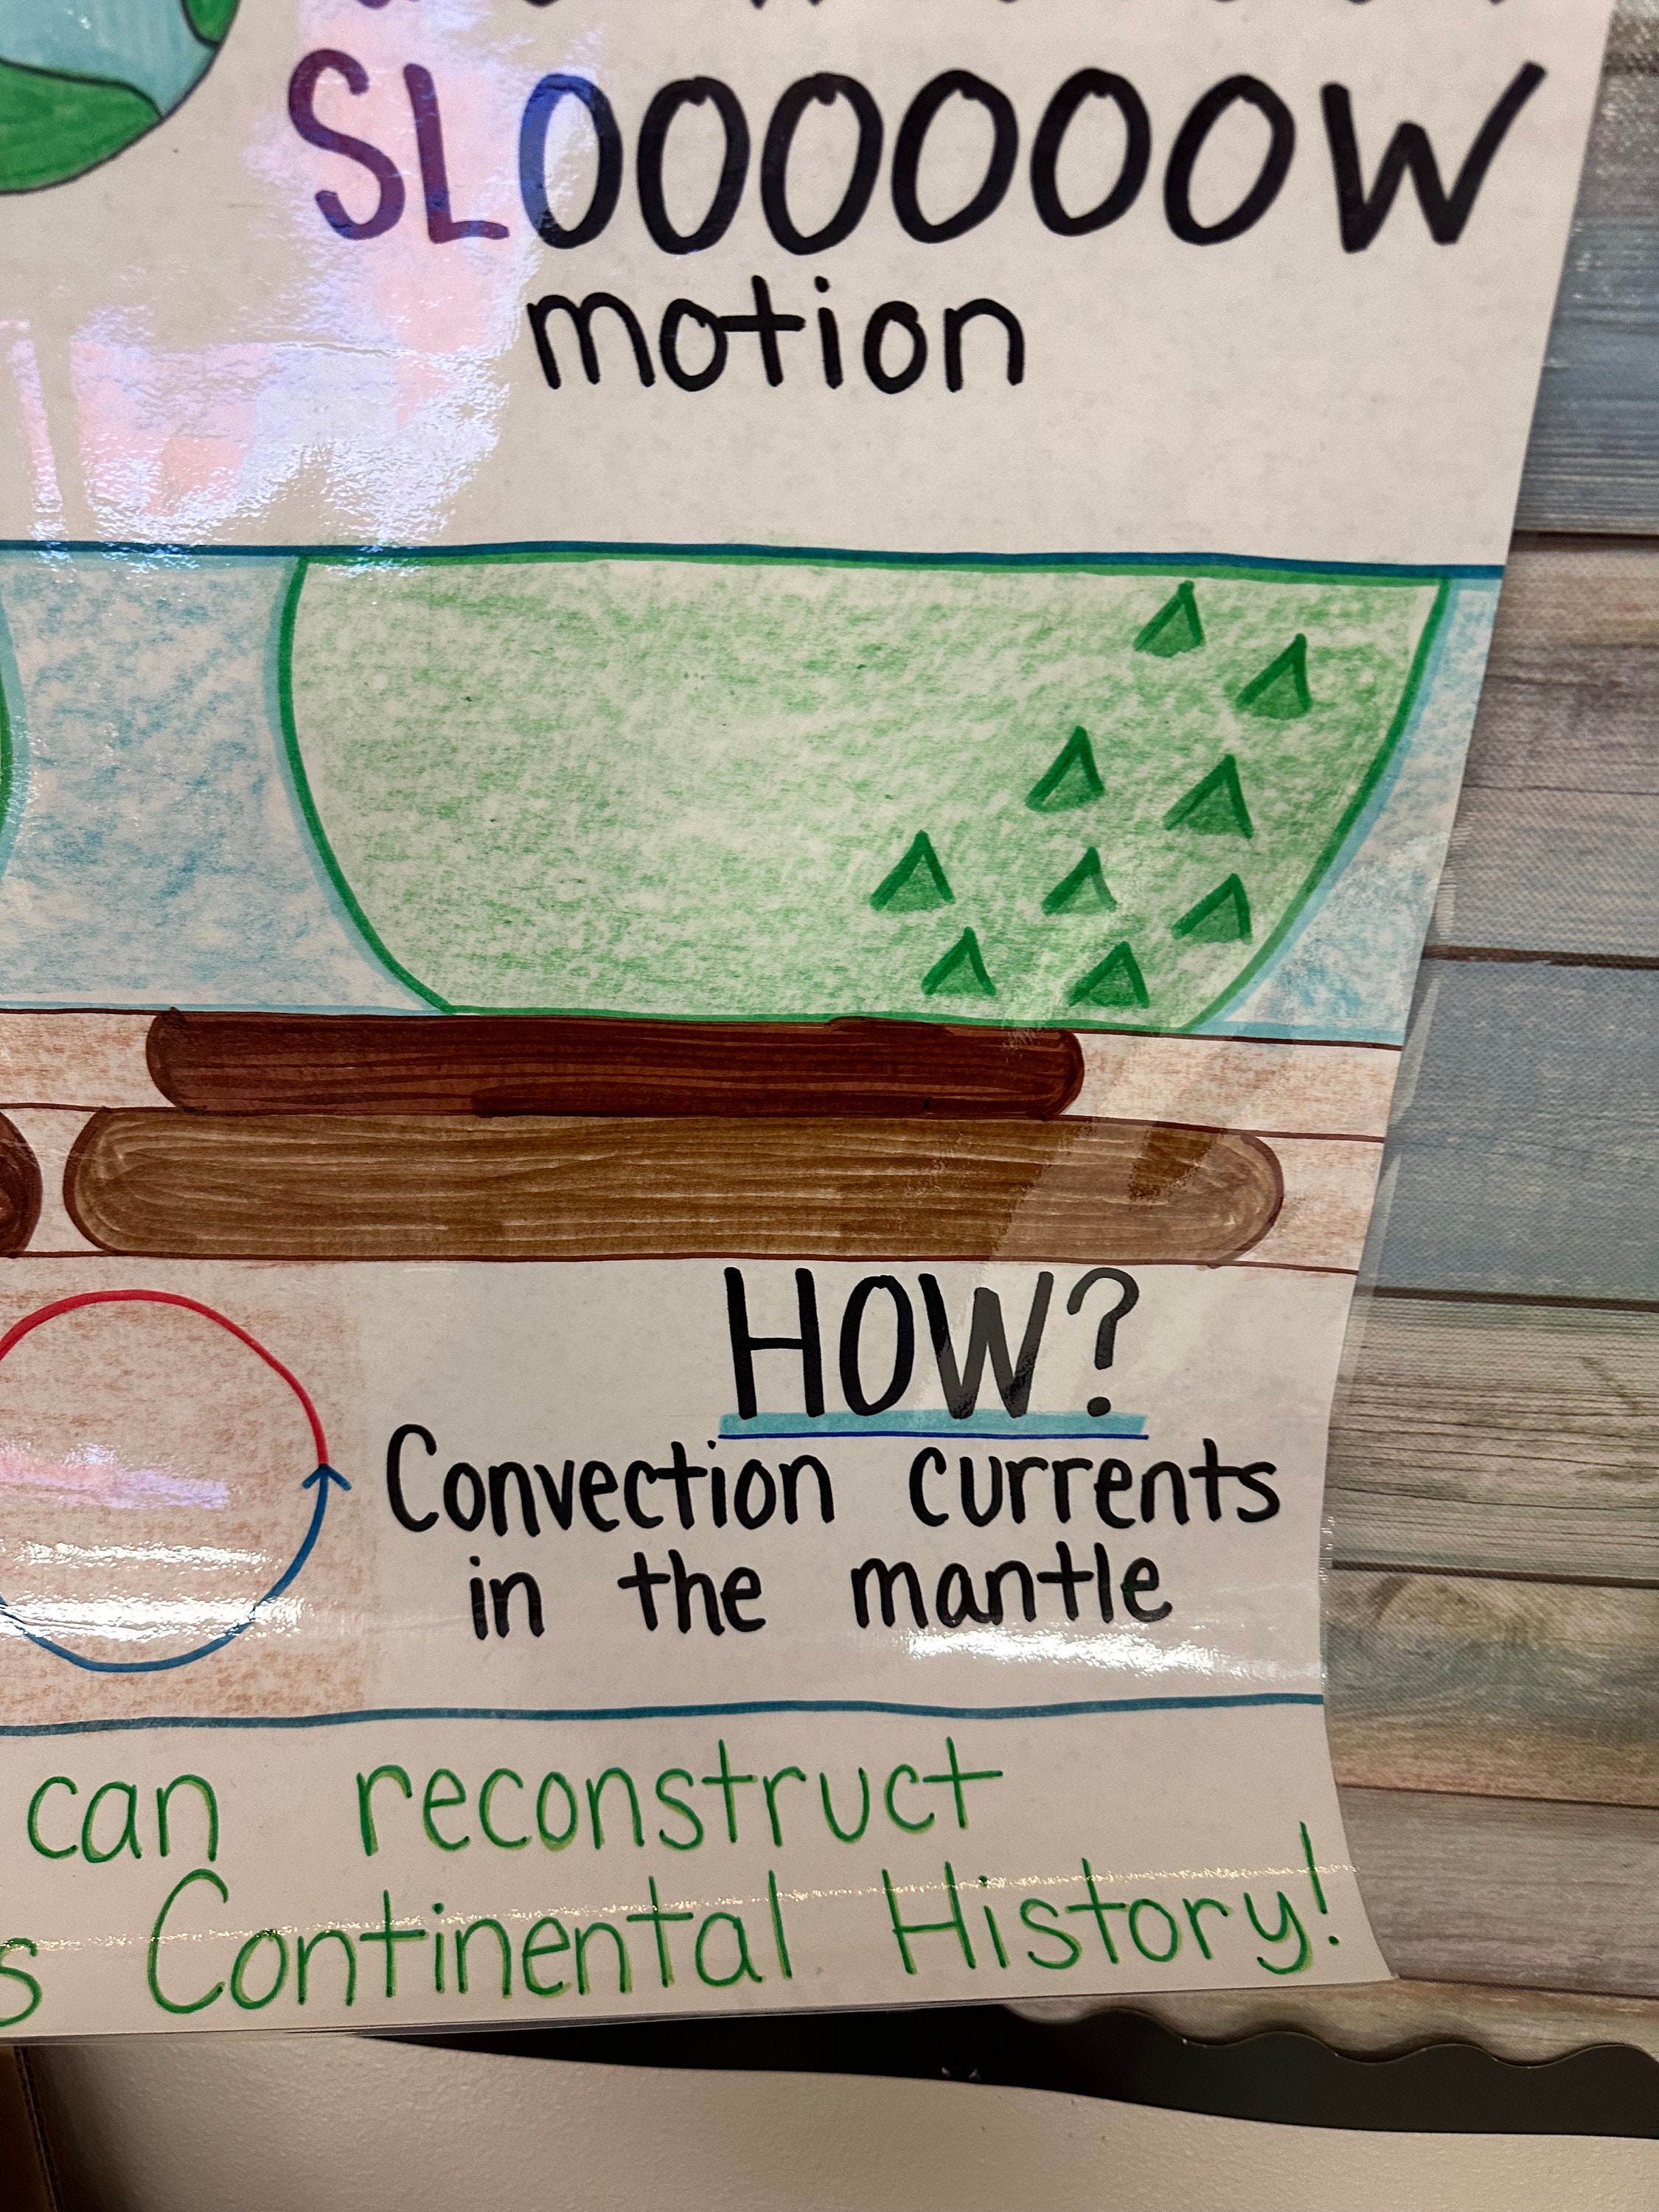 SLOOOOOOW
motion
HOW?
Convection currents
in the mantle
can reconstruct
s Continental History!